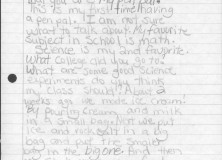 why you are my pen pal.
This is my first time having
a pen pal. I am not sure
what to talk about. My favorite
subject in school is math.
Science is my 2nd favorite.
What college did you go to?
What are some good science
experiments do you think
my class should? About 2
weeks ago we made ice cream!
By pouring cream, and milk
in a small bag. And we put
ice and rock salt in a big
bag and put the smaller
bag in the big one. And then